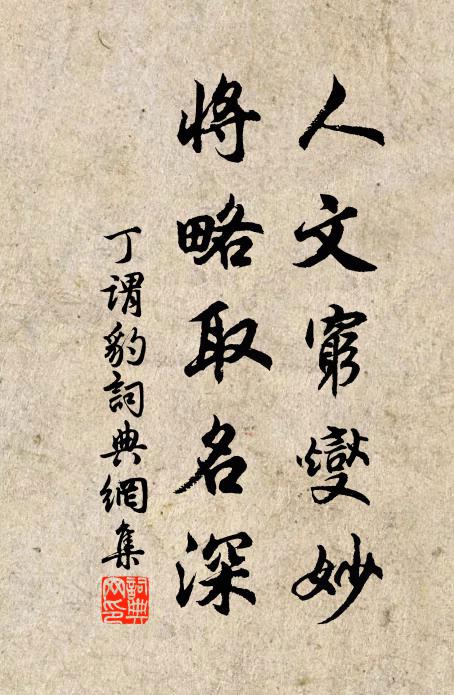 人文窮變妙
將略取名深
丁謂豹詞典網集
詞典
网印